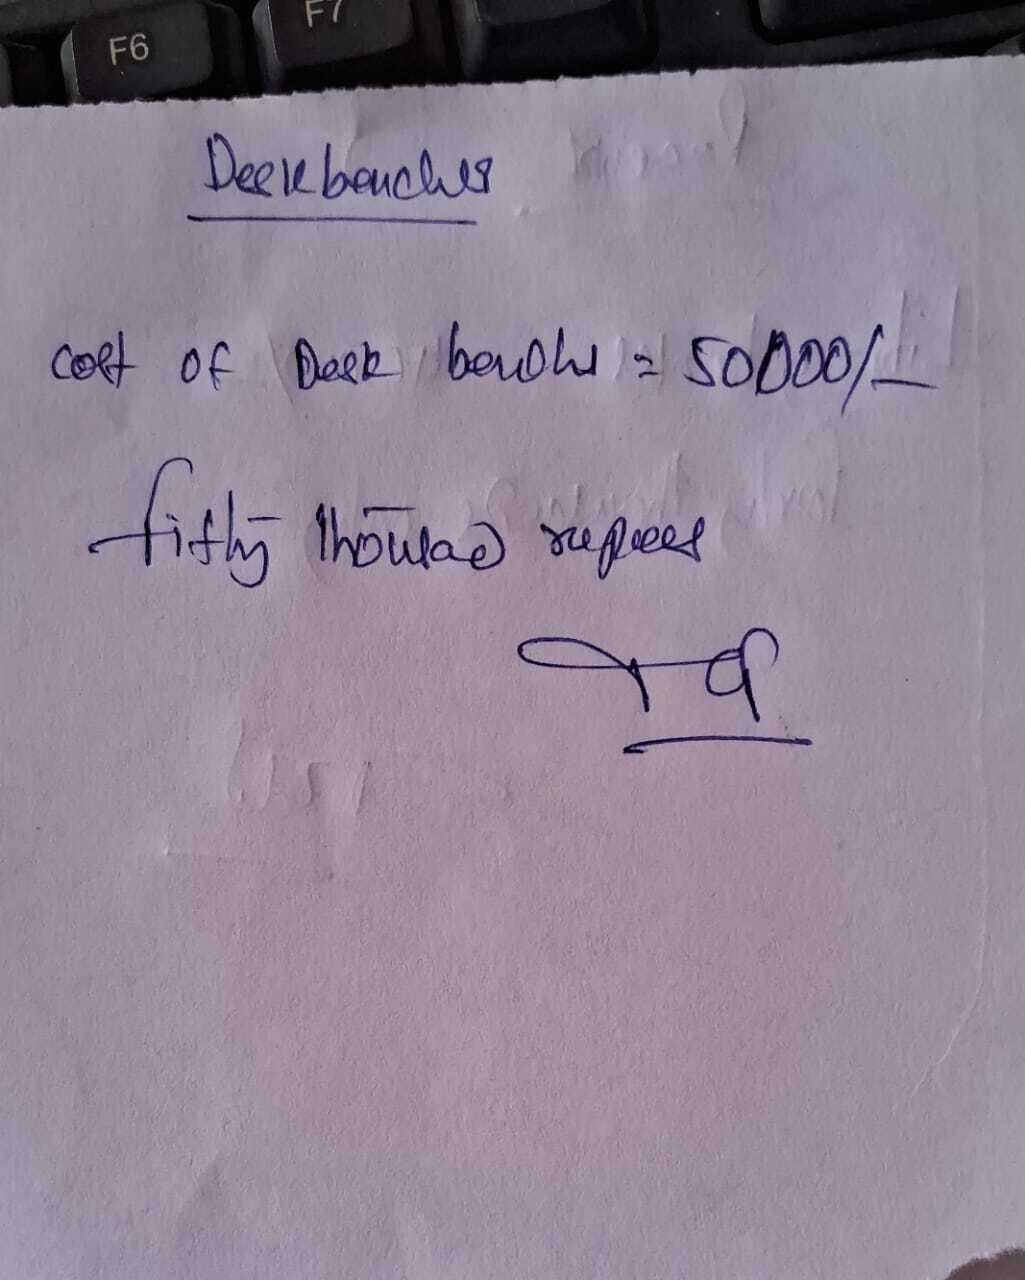 F6 F7
Desk benches
cost of Desk benches = 50000/-
fifty thousad rupees